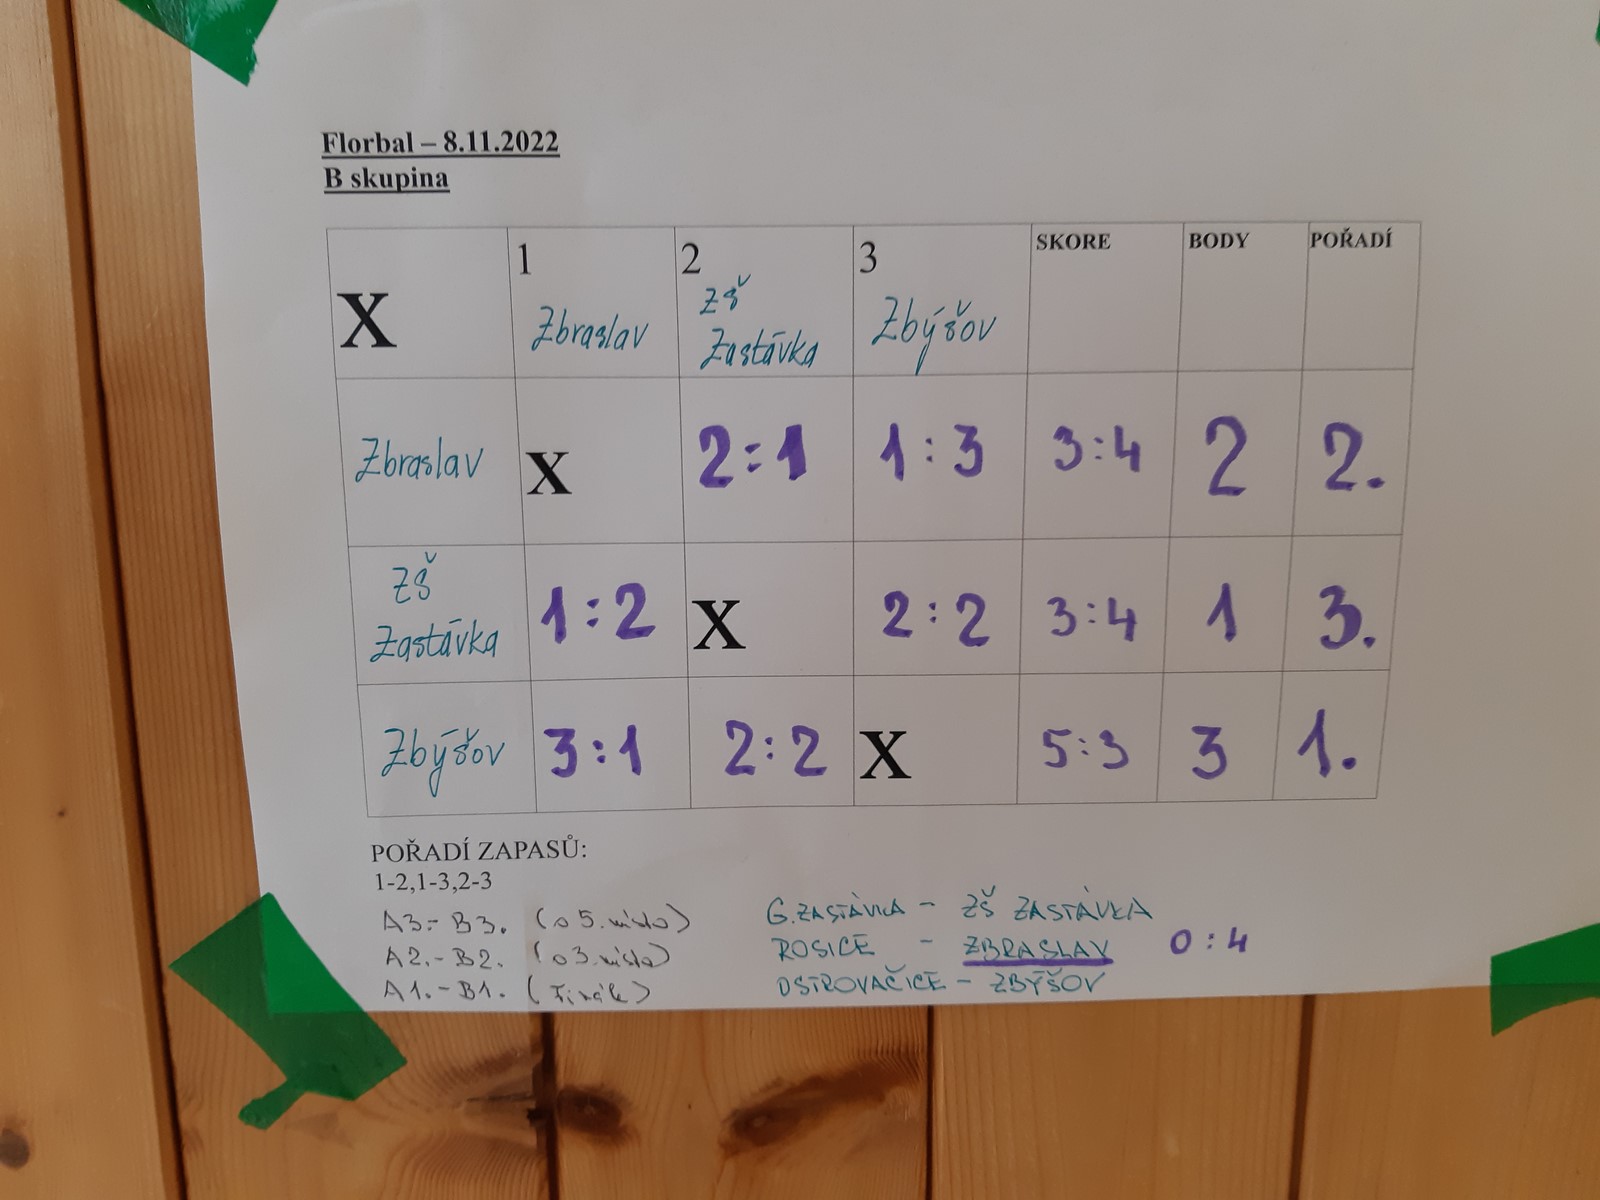 Florbal – 8.11.2022
B skupina
X 1 Zbraslav 2 ZŠ Zastávka 3 Zbýšov SKORE BODY POŘADÍ
Zbraslav X 2:1 1:3 3:4 2 2.
ZŠ Zastávka 1:2 X 2:2 3:4 1 3.
Zbýšov 3:1 2:2 X 5:3 3 1.
POŘADÍ ZAPASŮ:
1-2,1-3,2-3
A3.- B3. (o 5. místo) G.ZASTÁVKA - ZŠ ZASTÁVKA
A2.- B2. (o 3. místo) ROSICE - ZBRASLAV 0:4
A1.- B1. (finále) OSTROVAČICE - ZBÝŠOV